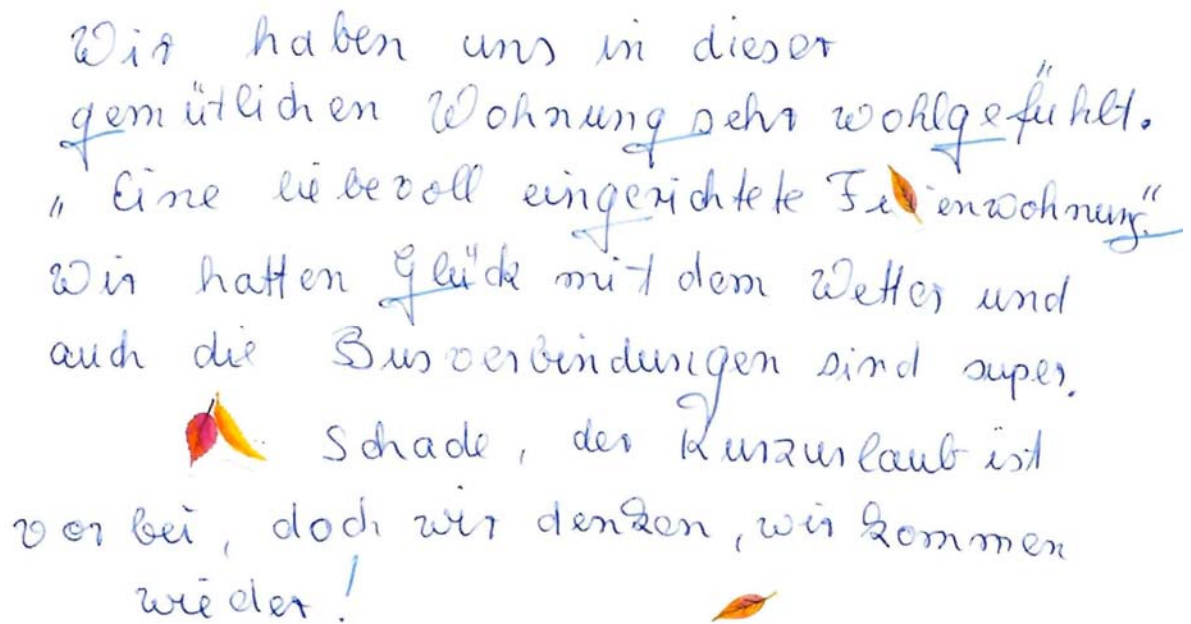 Wir haben uns in dieser
gemütlichen Wohnung sehr wohlgefühlt.
„Eine liebevoll eingerichtete Ferienwohnung."
Wir hatten Glück mit dem Wetter und
auch die Busverbindungen sind super.
Schade, der Kurzurlaub ist
vorbei, doch wir denken, wir kommen
wieder!